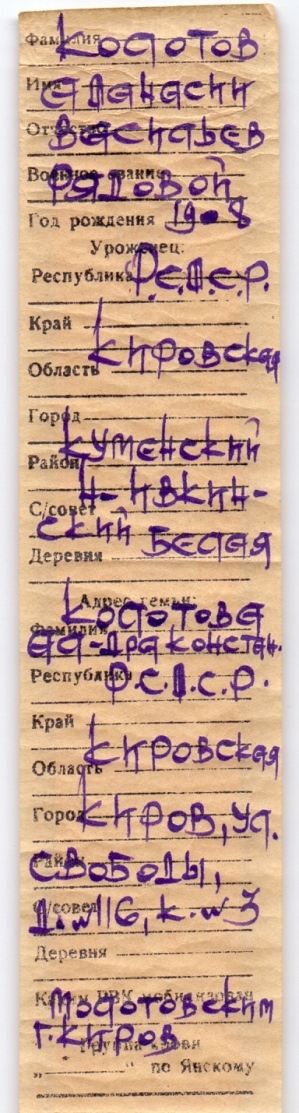 Фамилия Колотов
Имя Афанасий
Отчество Васильев
Военное звание Рядовой
Год рождения 1908
Уроженец:
Республика Р.С.Ф.С.Р.
Край
Область Кировская
Город
Район Куменский
С/совет Н-Ивкин-
ский
Деревня Белая
Адрес семьи:
Фамилия Колотова
Ал-дра Констан.
Республика Р.С.Ф.С.Р.
Край
Область Кировская
Город Киров, ул.
Район Свободы,
С/совет Д.№116, к.№3
Деревня
Каким РВК мобилизован
Молотовским
г. Киров
Группа крови
„ “ по Янскому